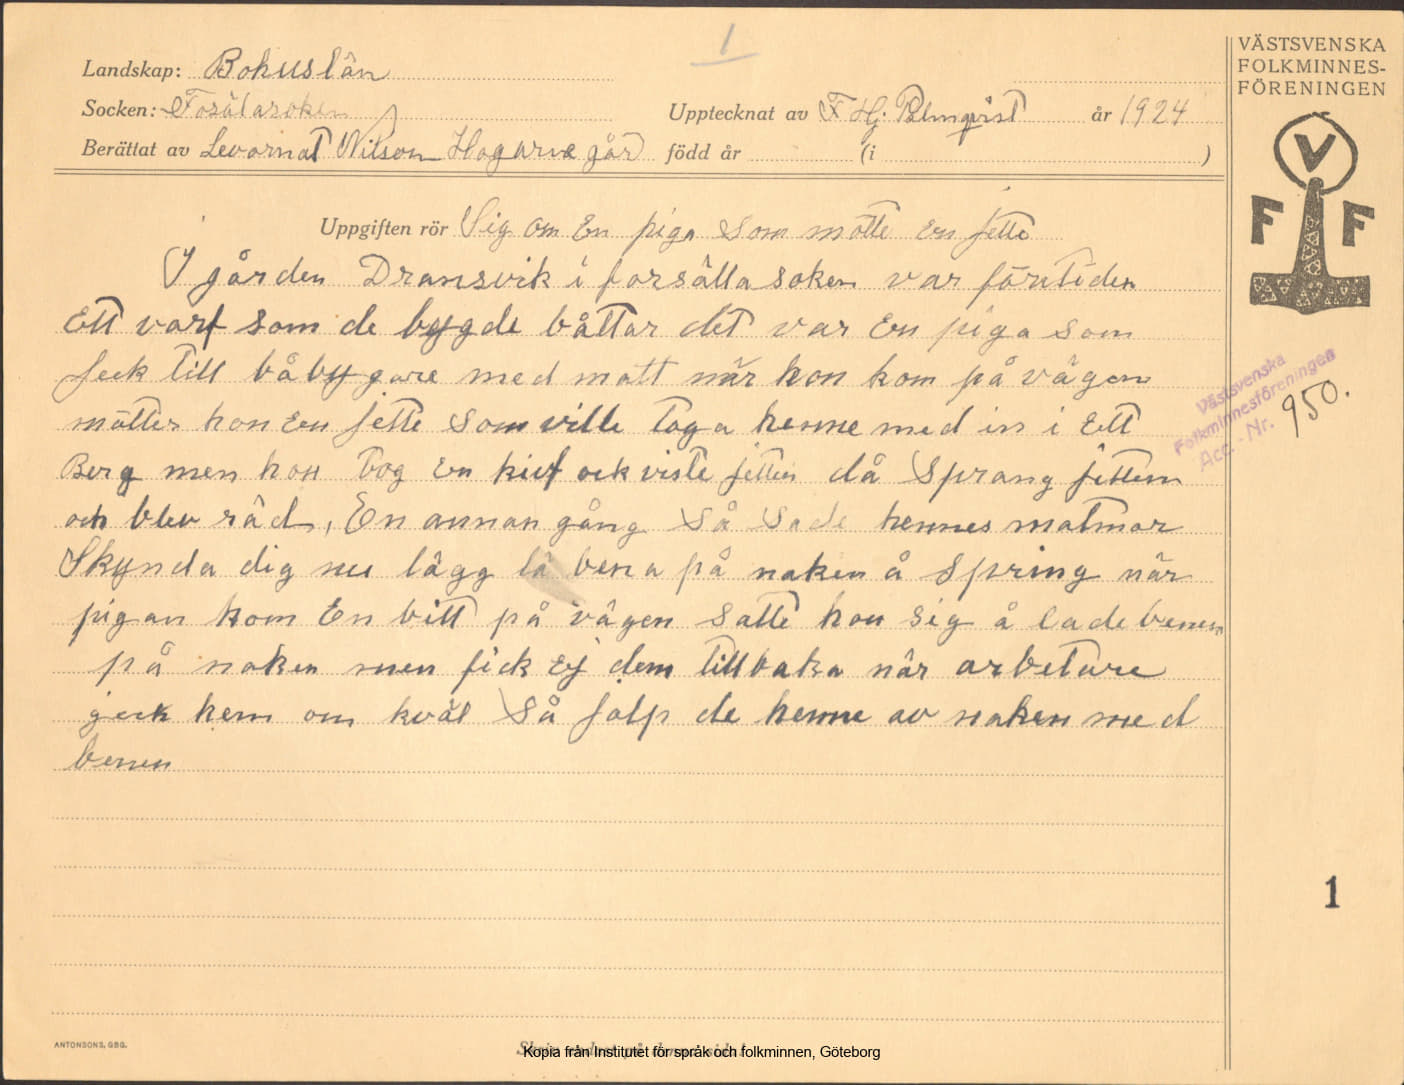 1
Landskap: Bohuslän
Socken: Forsälasoken
Upptecknat av F Hj. Palmqvist år 1924
Berättat av Levornat Nilson Hogarne går född år (i )
VÄSTSVENSKA
FOLKMINNES-
FÖRENINGEN
V
F F
Uppgiften rör Sig om En piga Som mötte en jette
I gården Dransvik i forsälla soken var förutiden
Ett varf som de bygde båttar det var En piga som
feck till båbyggare med matt när hon kom på vägen
mötter hon En jette som ville taga henne med in i Ett
Berg men hon tog en knif ock viste jetten då Sprang jetten
och blev räd, En annan gång Så Sade hennes matmor
Skynda dig nu lägg bena på naken å Spring när
pigan kom En bitt på vägen satte hon sig å lade benen
på naken men fick Ej dem tillbaka när arbetare
geck hem om kväl Så jalp de henne av naken med
benen
Västsvenska
Folkminnesföreningen
Acc.-Nr. 950.
1
ANTONSONS, GBG.
Kopia från Institutet för språk och folkminnen, Göteborg